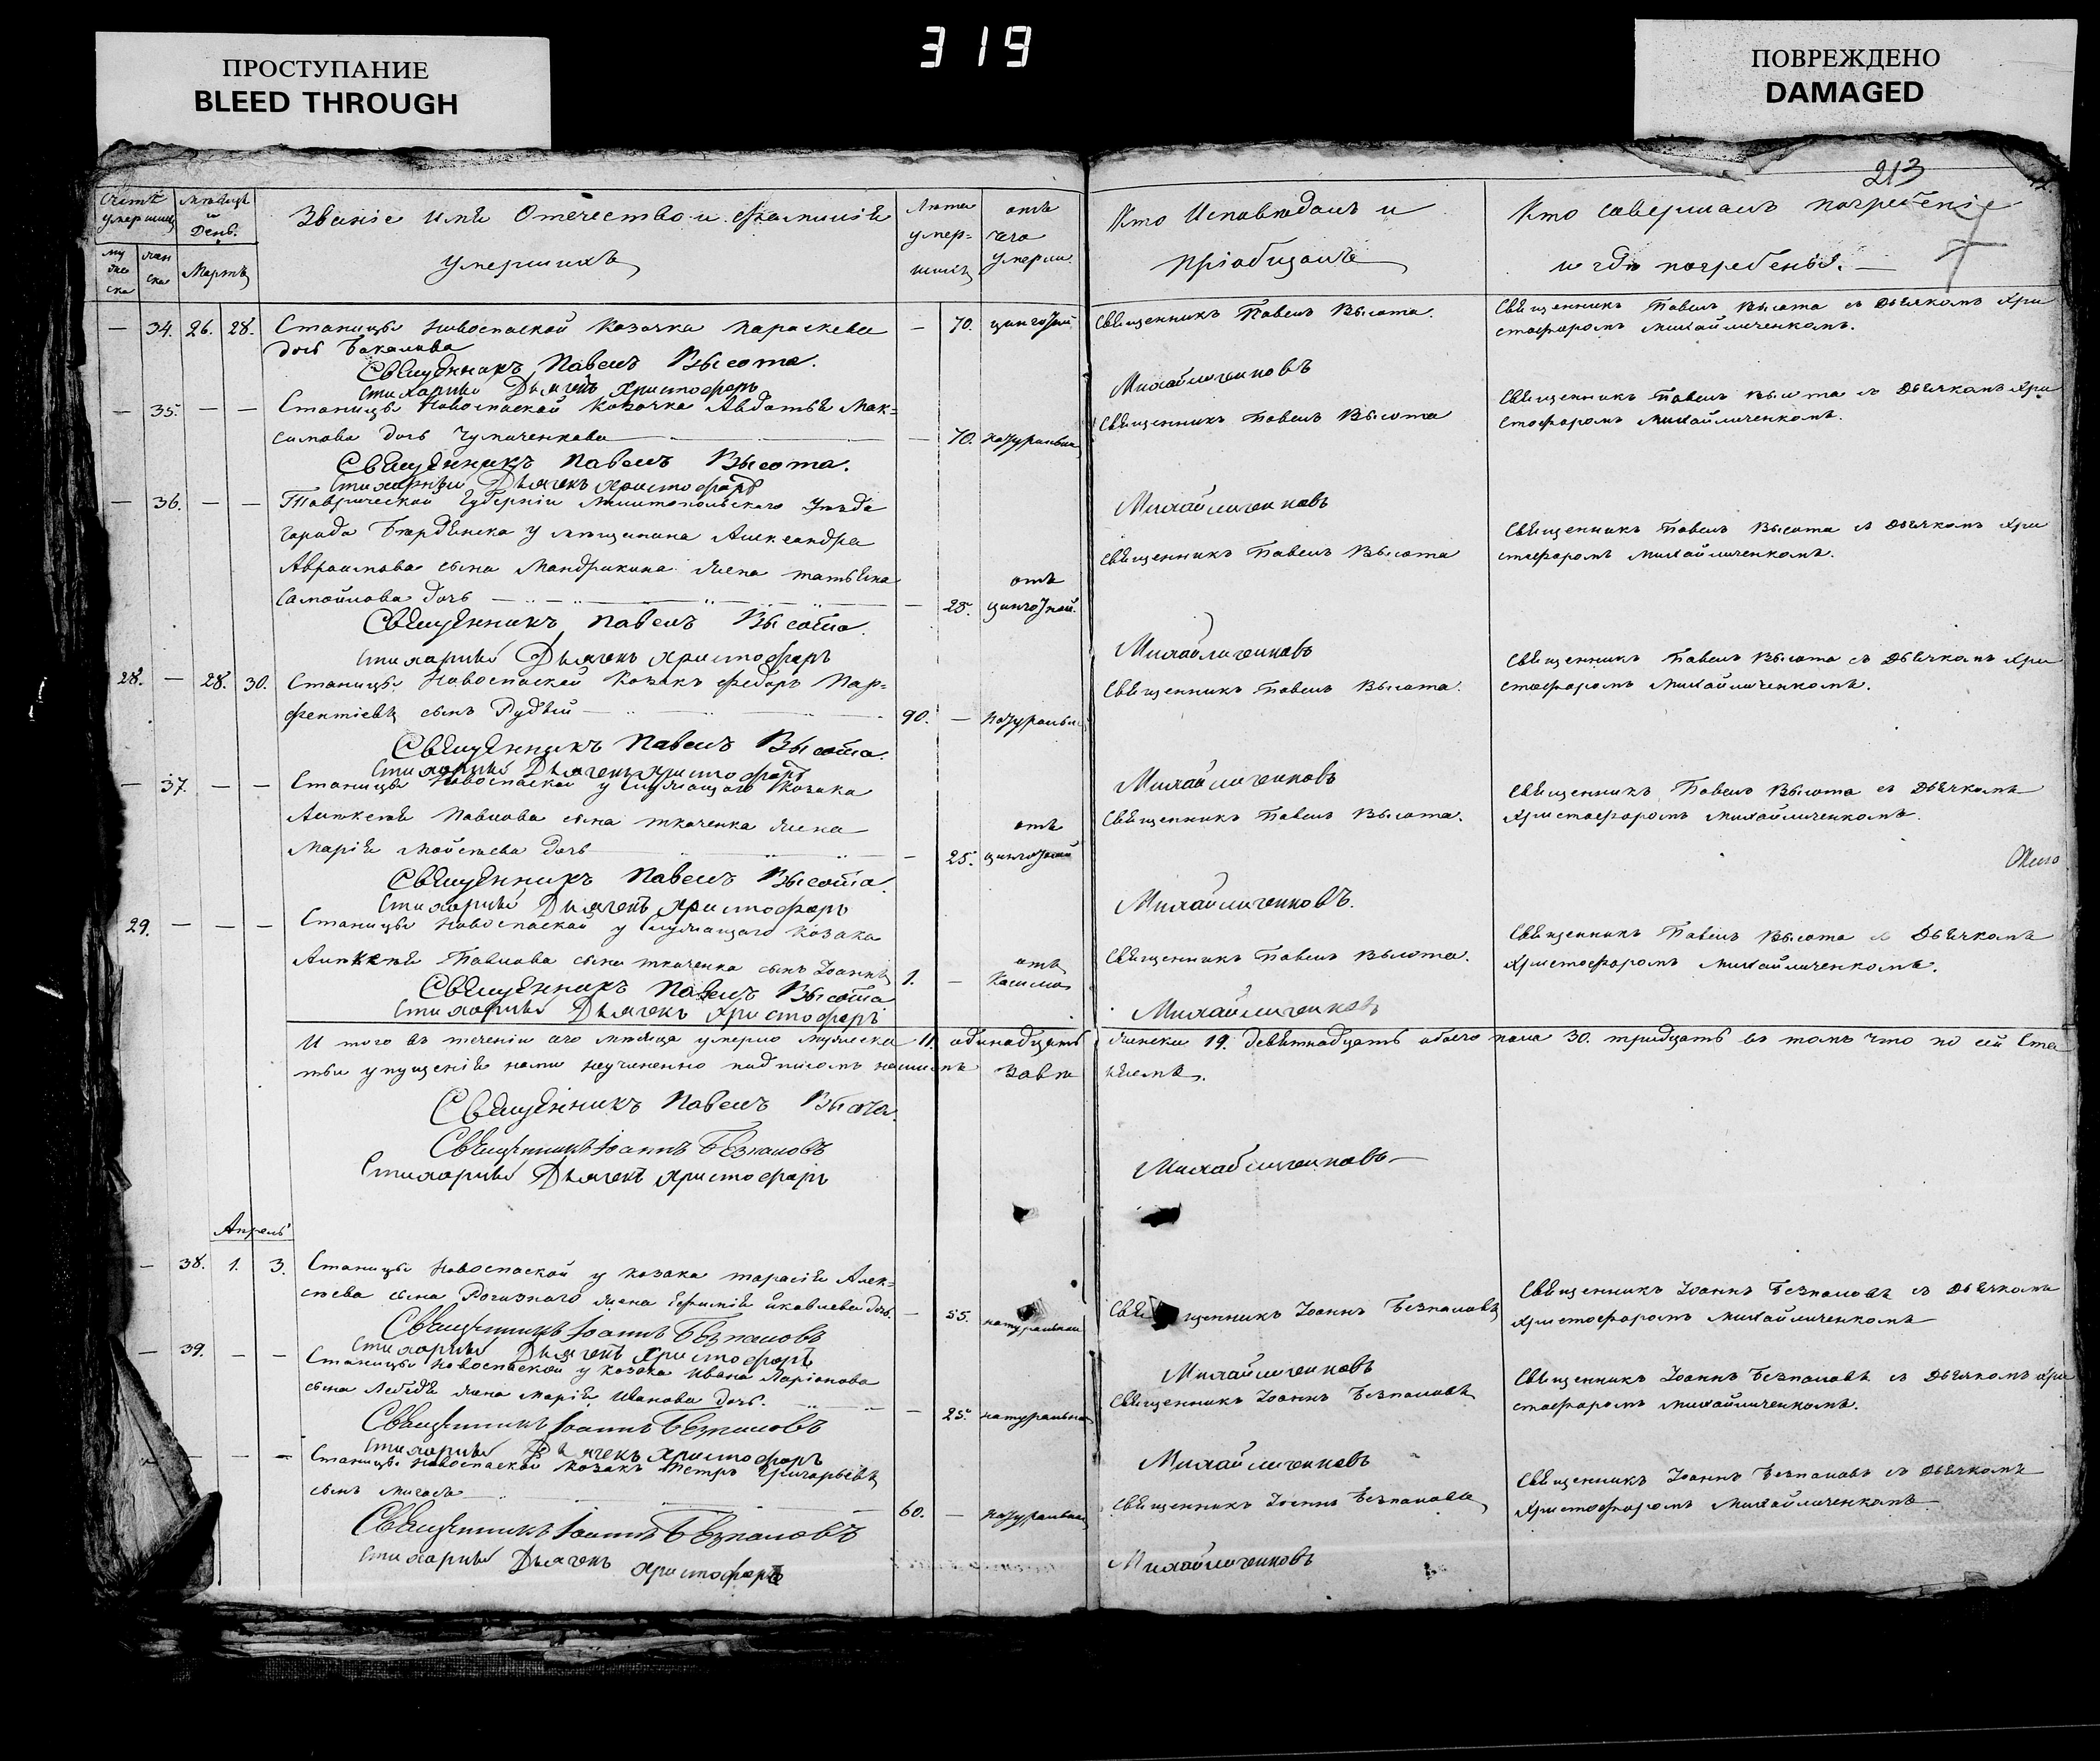 ПРОСТУПАНИЕ
BLEED THROUGH
319
ПОВРЕЖДЕНО
DAMAGED
213
Счетъ умершихъ
мужеска
женска
Мѣсяцъ и День.
Мартъ
Званіе имя Отечество и Фамилія
умершихъ
Лѣта умершихъ
отъ чего умерли.
Кто Исповѣдалъ и
пріобщалъ
Кто совершалъ погребеніе
и гдѣ погребены. —
— 34. 26. 28. Станицы Новоспаской Козачка Параскева — 70. цынготной Священникъ Павелъ Высота. Священникъ Павелъ Высота съ Дьячкомъ Хри
дочь Бакалова стофоромъ Михайличенкомъ.
Священникъ Павелъ Высота.
Стихарный Дьячекъ Христофоръ Михайличенковъ
— 35. — — Станицы Новоспаской Козачка Авдотья Мак= Священникъ Павелъ Высота Священникъ Павелъ Высота съ Дьячкомъ Хри
симова дочь Чумаченкова — 70. натуральн стофоромъ Михайличенкомъ.
Священникъ Павелъ Высота.
Стихарный Дьячекъ Христофоръ Михайличенковъ
— 36. — — Таврической Губерніи Мелитопольскаго Уѣзда
города Бердянска у мѣщанина Александра Священникъ Павелъ Высота Священникъ Павелъ Высота съ Дьячкомъ Хри
Авраамова сына Мандрикина жена татьяна отъ стофоромъ Михайличенкомъ.
Самойлова дочь — 25. цынготной.
Священникъ Павелъ Высота.
Стихарный Дьячекъ Христофоръ Михайличенковъ
28. — 28. 30. Станицы Новоспаской Козакъ Федоръ Пар= Священникъ Павелъ Высота. Священникъ Павелъ Высота съ Дьячкомъ Хри
фентіевъ сынъ Рудый 90. — натуральн стофоромъ Михайличенкомъ.
Священникъ Павелъ Высота.
Стихарный Дьячекъ Христофоръ Михайличенковъ
— 37. — — Станицы Новоспаской у служащаго Козака Священникъ Павелъ Высота съ Дьячкомъ
Алексѣя Павлова сына ткаченка жена отъ Священникъ Павелъ Высота. Христофоромъ Михайличенкомъ.
Марія Мойсеева дочь — 25. цынготной
Священникъ Павелъ Высота.
Стихарный Дьячекъ Христофоръ Михайличенковъ.
29. — — — Станицы Новоспаской у служащаго Козака Священникъ Павелъ Высота съ Дьячкомъ
Алексѣя Павлова сына ткаченка сынъ Іоаннъ 1. — отъ Кашля Священникъ Павелъ Высота. Христофоромъ Михайличенкомъ.
Священникъ Павелъ Высота
Стихарный Дьячекъ Христофоръ Михайличенковъ
И того въ теченіи сего мѣсяца умерло мужеска 11. одинадцать женска 19. девятнадцать обоего пола 30. тридцать въ томъ что по сей Ста
тьи упущенія нами неучиненно подписомъ нашимъ завѣ ряемъ.
Священникъ Павелъ Высота.
Священникъ Іоаннъ Безпаловъ
Стихарный Дьячекъ Христофоръ Михайличенковъ
Апрель
— 38. 1. 3. Станицы Новоспаской у козака тарасія Алек= Священникъ Іоаннъ Безпаловъ съ Дьячкомъ
сѣева сына Рогизнаго жена Ефимія Яковлева дочь — 55. натуральной Священникъ Іоаннъ Безпаловъ Христофоромъ Михайличенкомъ
Священникъ Іоаннъ Безпаловъ
Стихарный Дьячекъ Христофоръ Михайличенковъ
— 39. — — Станицы Новоспаской у козака Ивана Ларіонова Священникъ Іоаннъ Безпаловъ съ Дьячкомъ Хри
сына Лебедя жена Марія Иванова дочь. — 25. натуральной Священникъ Іоаннъ Безпаловъ стофоромъ Михайличенкомъ.
Священникъ Іоаннъ Безпаловъ
Стихарный Дьячекъ Христофоръ Михайличенковъ
— — — Станицы Новоспаской Козакъ Петръ Григорьевъ Священникъ Іоаннъ Безпаловъ съ Дьячкомъ
сынъ 60. — натуральн Священникъ Іоаннъ Безпаловъ Христофоромъ Михайличенкомъ
Священникъ Іоаннъ Безпаловъ
Стихарный Дьячекъ Христофоръ Михайличенковъ